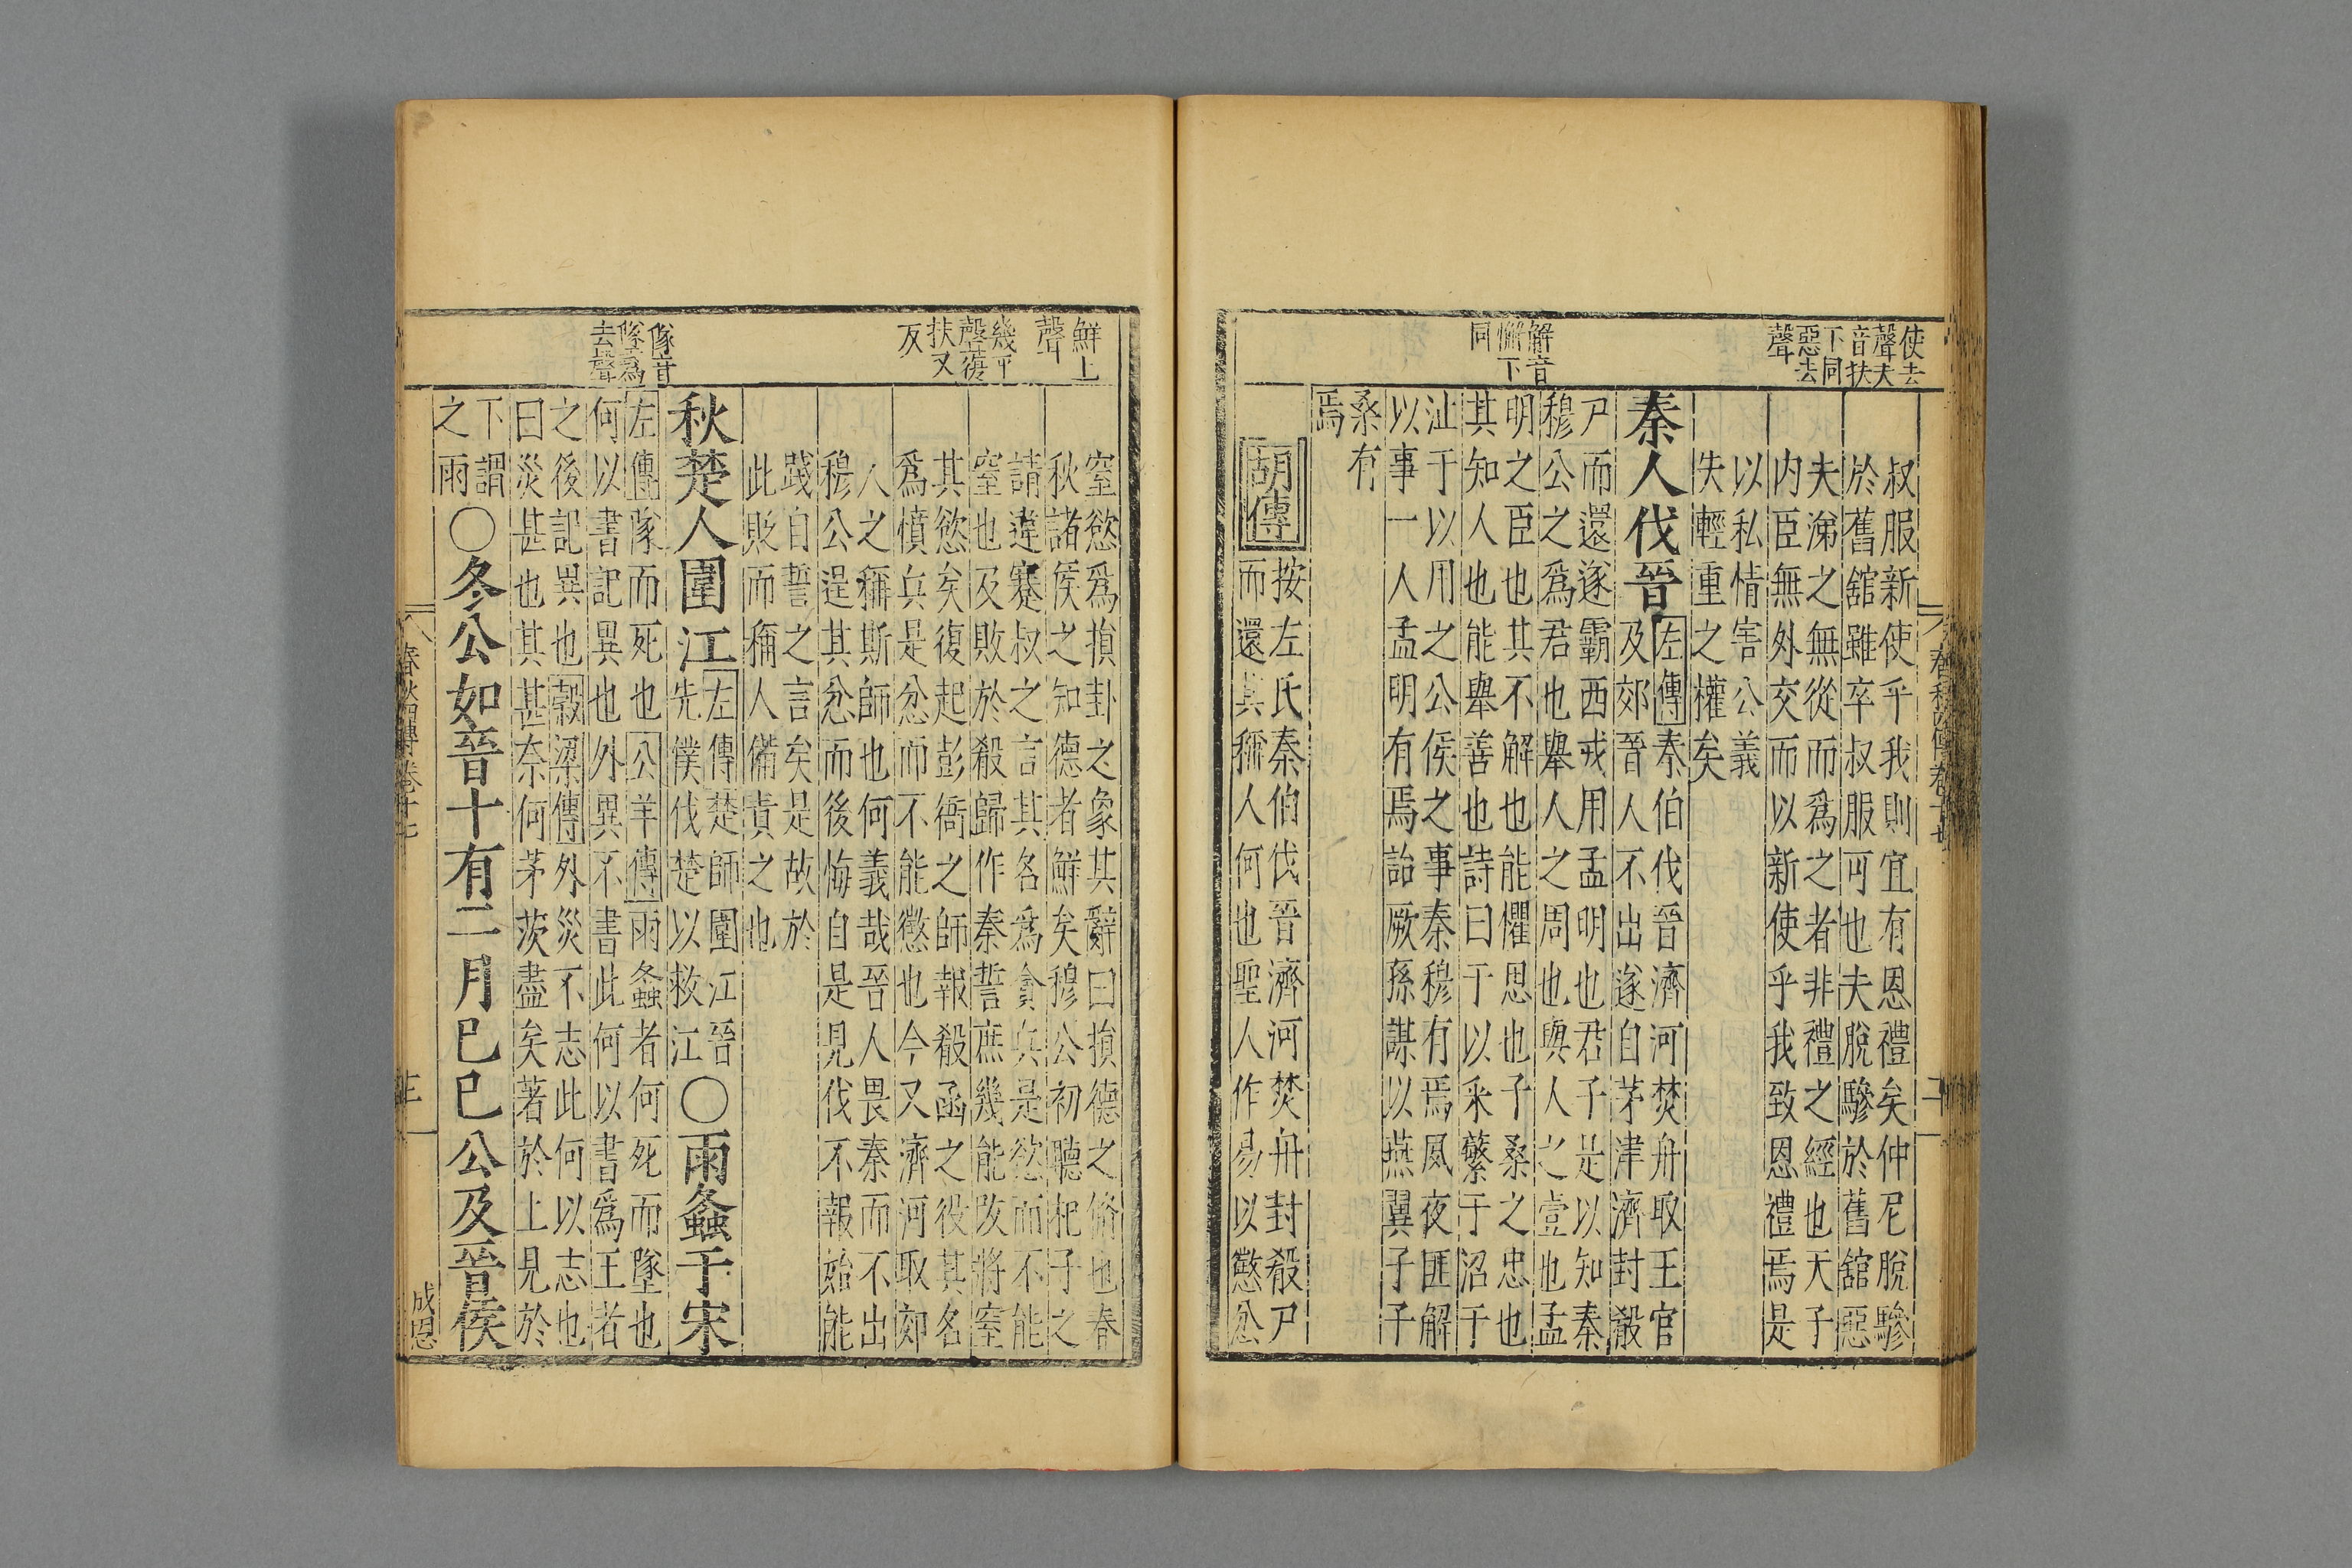 使去
聲夫
音扶
下同
惡去
聲
解音
懈下
同
叔服新使乎我則宜有恩禮矣仲尼脫驂
於舊舘雖卒叔服可也夫脫驂於舊舘惡
夫涕之無從而爲之者非禮之經也天子
内臣無外交而以新使乎我致恩禮焉是
以私情害公義
失輕重之權矣
秦人伐晉
左傳秦伯伐晉濟河焚舟取王官
及郊晉人不出遂自茅津濟封殽
尸而還遂霸西戎用孟明也君子是以知秦
穆公之爲君也舉人之周也與人之壹也孟
明之臣也其不解也能懼思也子桑之忠也
其知人也能舉善也詩曰于以采蘩于沼于
沚于以用之公侯之事秦穆有焉夙夜匪解
以事一人孟明有焉詒厥孫謀以燕翼子子
桑有
焉
胡傳
按左氏秦伯伐晉濟河焚舟封殽尸
而還其稱人何也聖人作易以懲忿
春秋四傳卷十七
二
鮮上
聲
幾平
聲復
扶又
反
隊音
墜爲
去聲
窒慾爲損卦之象其辭曰損德之脩也春
秋諸侯之知德者鮮矣穆公初聽杞子之
請違蹇叔之言其名爲貪兵是慾而不能
窒也及敗於殽歸作秦誓庶幾能改將窒
其慾矣復起彭衙之師報殽函之役其名
爲憤兵是忿而不能懲也今又濟河取郊
人之稱斯師也何義哉晉人畏秦而不出
穆公逞其忿而後悔自是見伐不報始能
踐自誓之言矣是故於
此貶而稱人備責之也
秋楚人圍江
左傳楚師圍江晉
先僕伐楚以救江
〇雨螽于宋
左傳隊而死也公羊傳雨螽者何死而墜也
何以書記異也外異不書此何以書爲王者
之後記異也穀梁傳外災不志此何以志也
曰災甚也其甚奈何茅茨盡矣著於上見於
下謂
之雨
〇冬公如晉十有二月已巳公及晉侯
春秋四傳卷十七
成恩